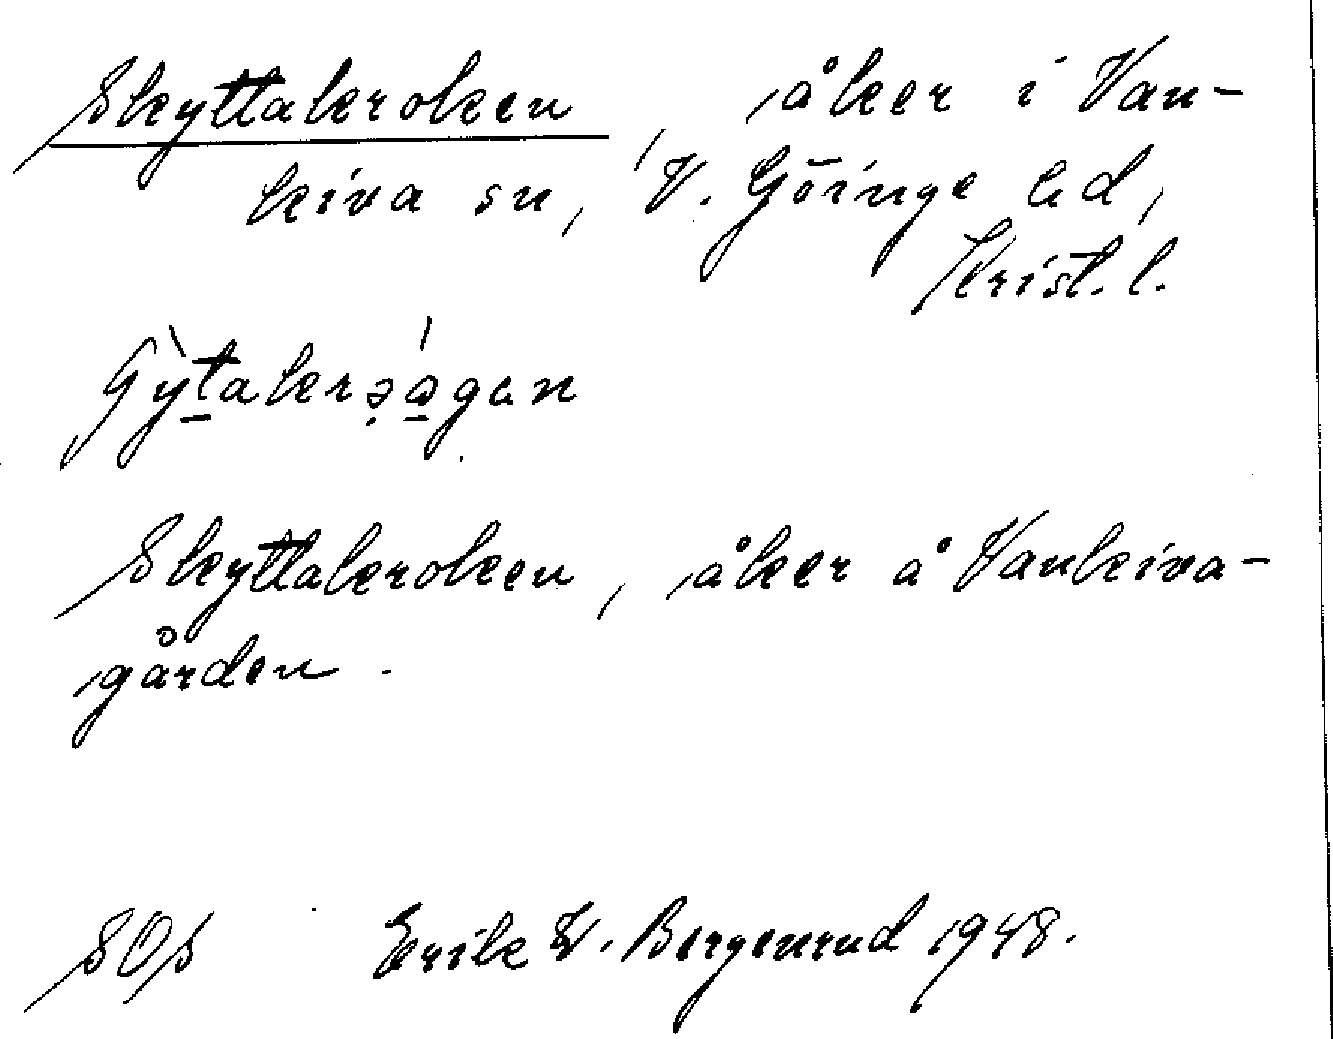 Skyttakroken, åker i Van-
kiva sn, V. Göinge hd,
Krist. l.
Skyttakroken, åker å Vankiva-
gården.
SOS Erik W. Bergenrud 1948.